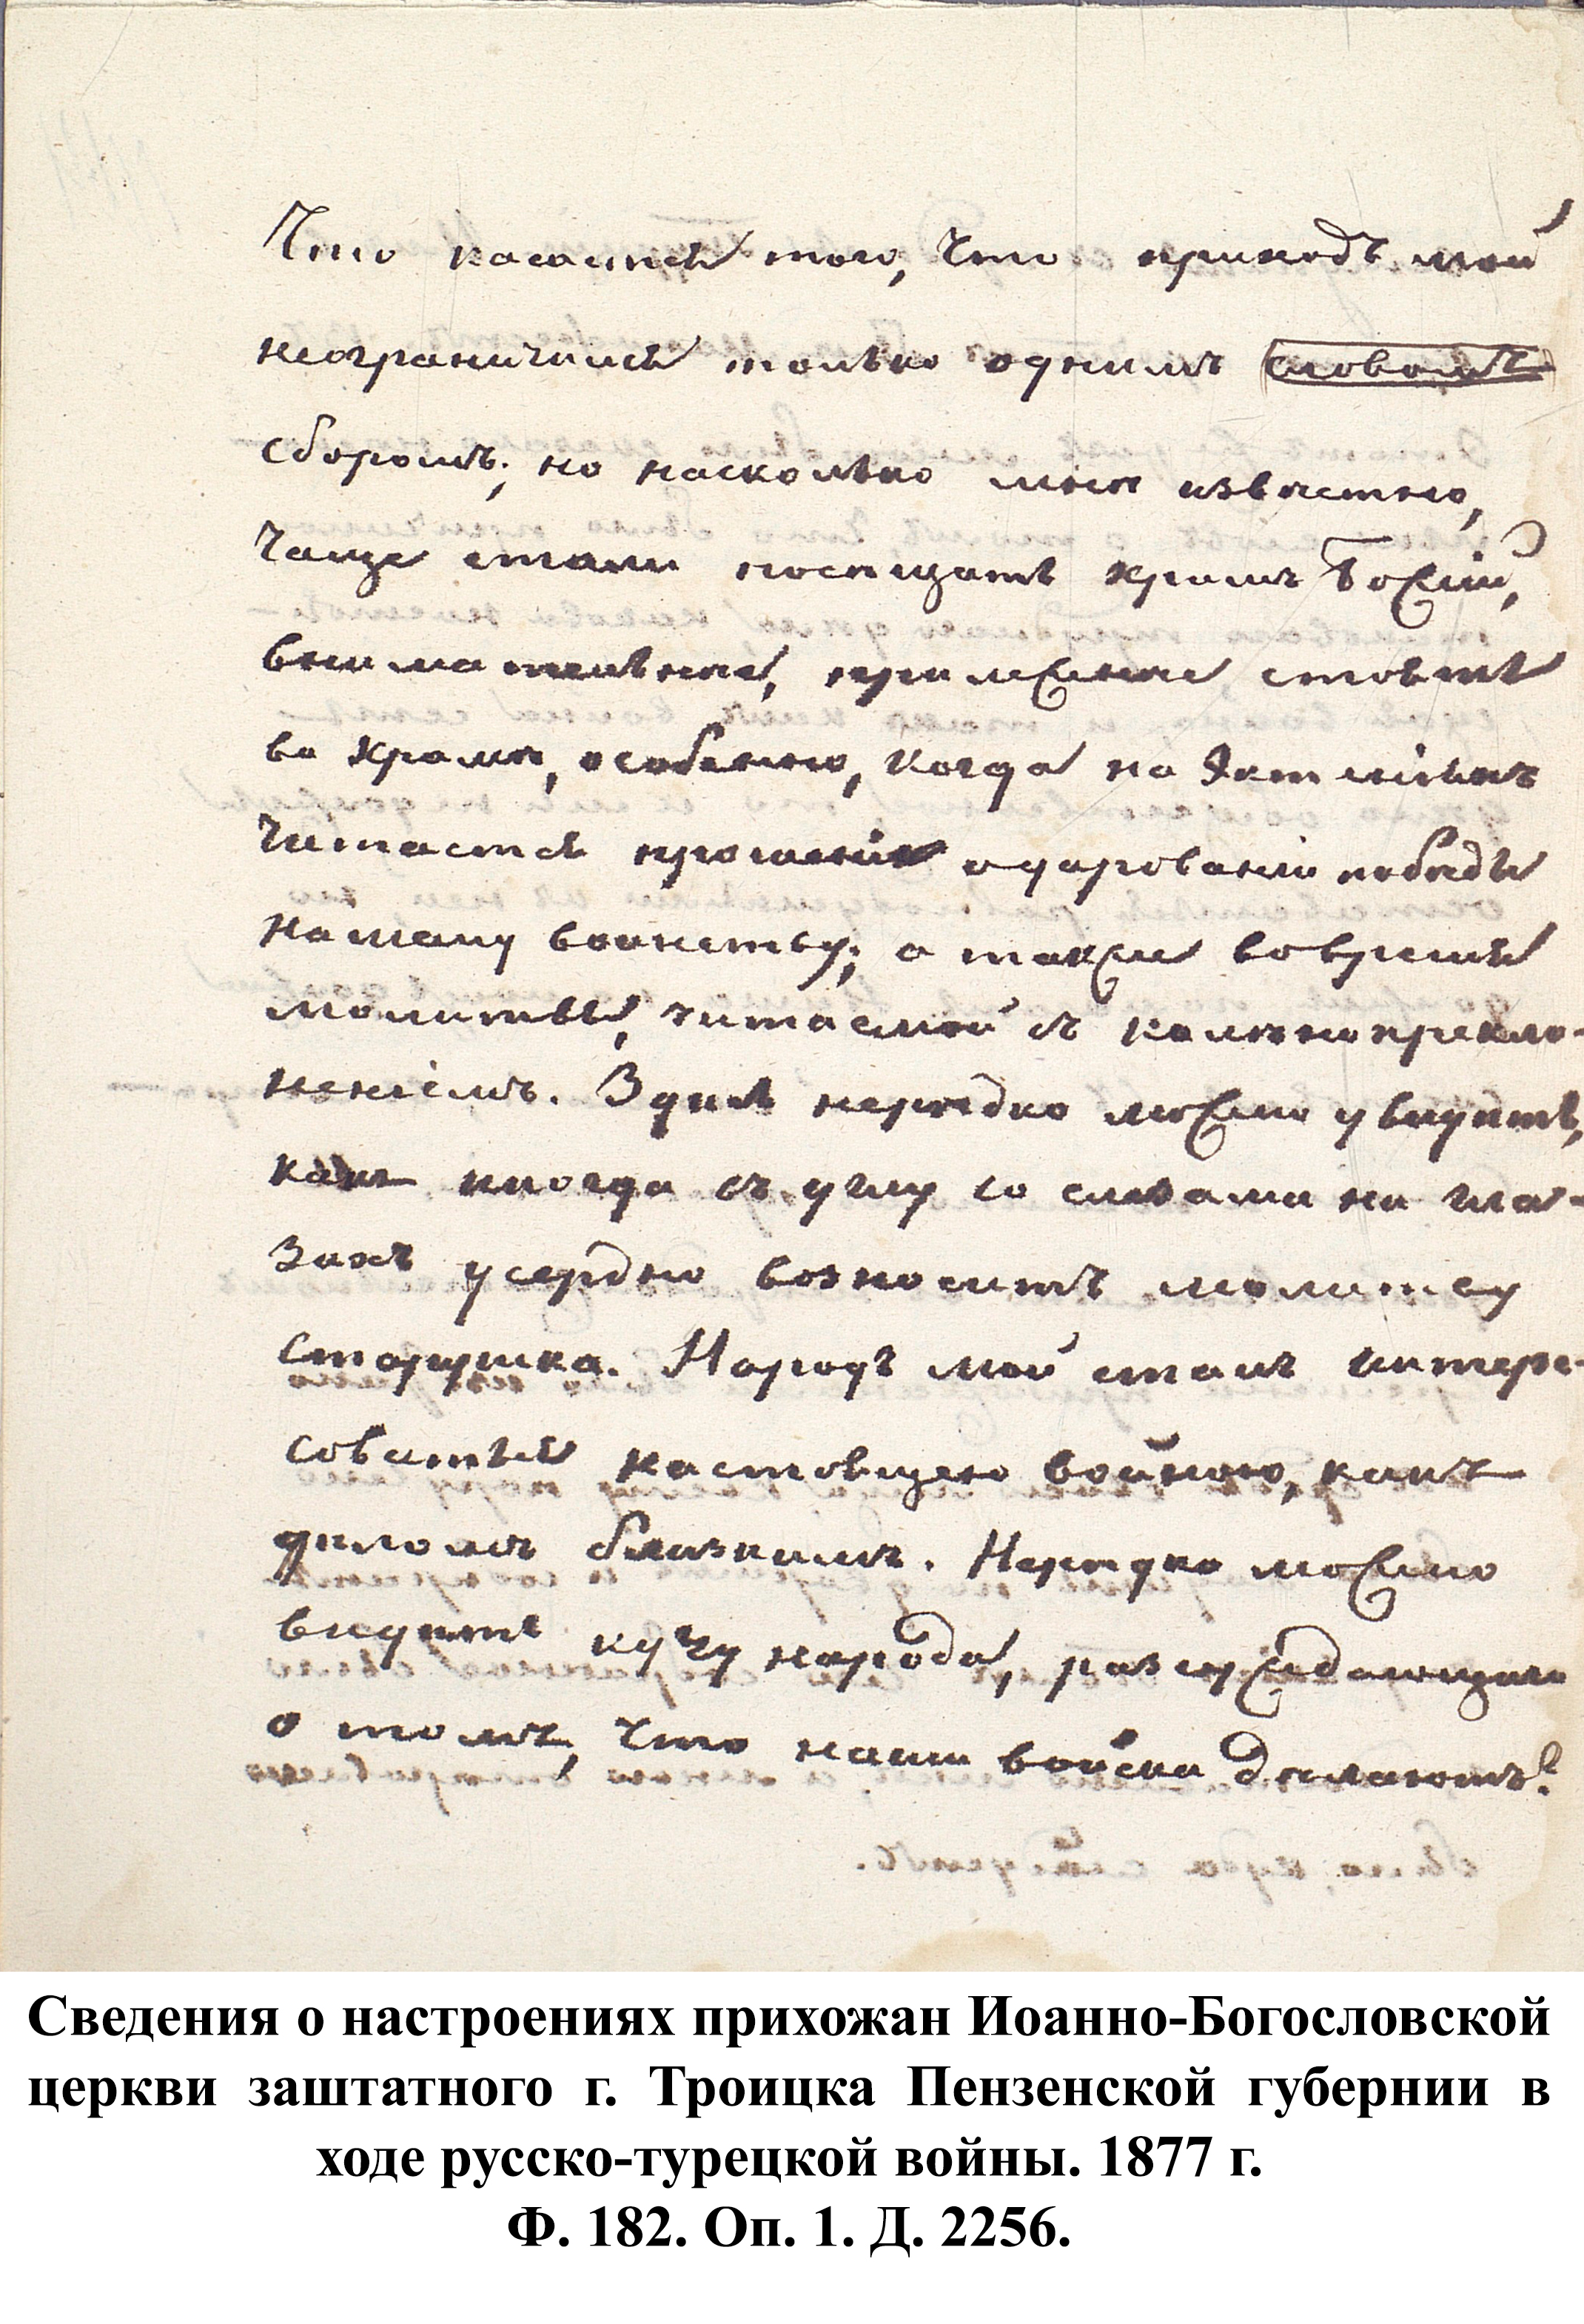 Что касается того, что приходъ мой
неограничился только однимъ словомъ
сборомъ; но насколько мнѣ извѣстно,
чаще стали посѣщать храмъ Божій,
внимательнѣе, прилежнѣе стоятъ
во храмѣ, особенно, когда на Эктеніяхъ
читается прошеніе о дарованіи побѣды
нашему воинству; а также во время
молитвы, читаемой съ колѣнопрекло-
неніемъ. Здѣсь нерѣдко можно увидѣть,
какъ иногда въ углу со слезами на гла-
захъ усердно возноситъ молитву
старушка. Народъ мой сталъ интере-
соваться настоящею войною, какъ
дѣломъ близкимъ. Нерѣдко можно
видѣть кучу народа, разсуждающаго
о томъ, что наши войска дѣлаютъ?
Сведения о настроениях прихожан Иоанно-Богословской
церкви заштатного г. Троицка Пензенской губернии в
ходе русско-турецкой войны. 1877 г.
Ф. 182. Оп. 1. Д. 2256.